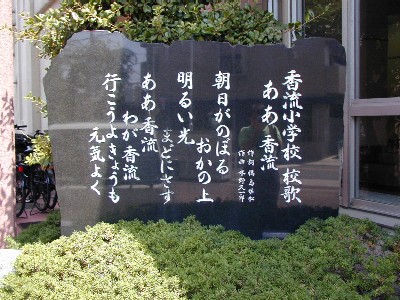 香流小学校 校歌
ああ 香流
朝日がのぼる
おかの上
明るい光
まどにさす
ああ 香流
わが 香流
行こうよきょうも
元気よく